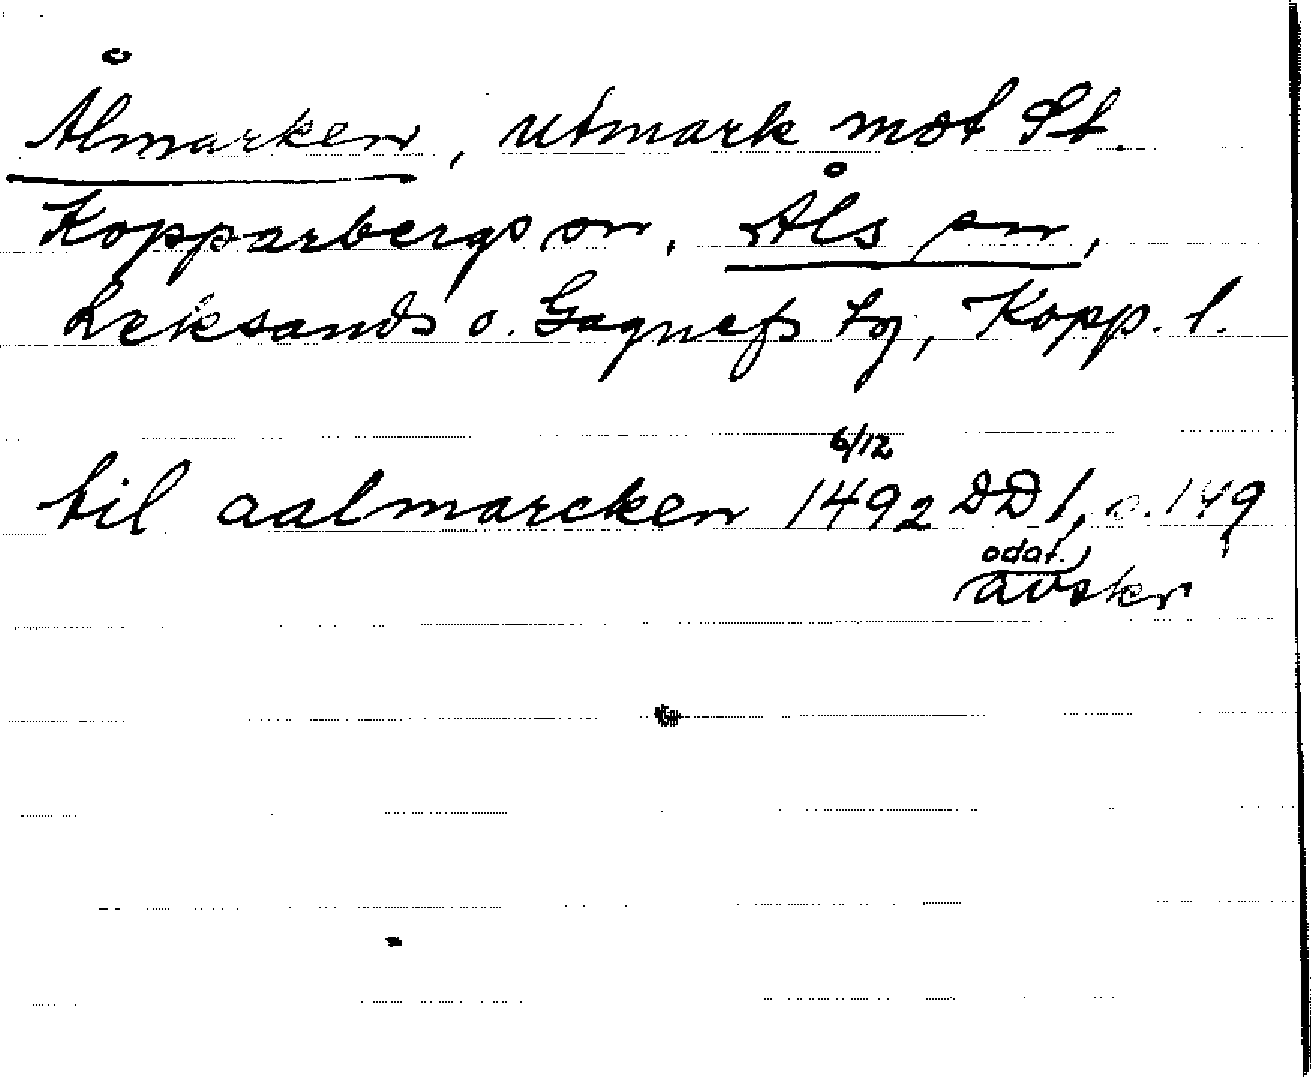 Ålmarken, utmark mot St.
Kopparbergs sn. Åls sn,
Leksands o. Gagnefs tg, Kopp. l.
6/12
til aalmarcken 1492 DD 1, s. 149
odat.
avskr